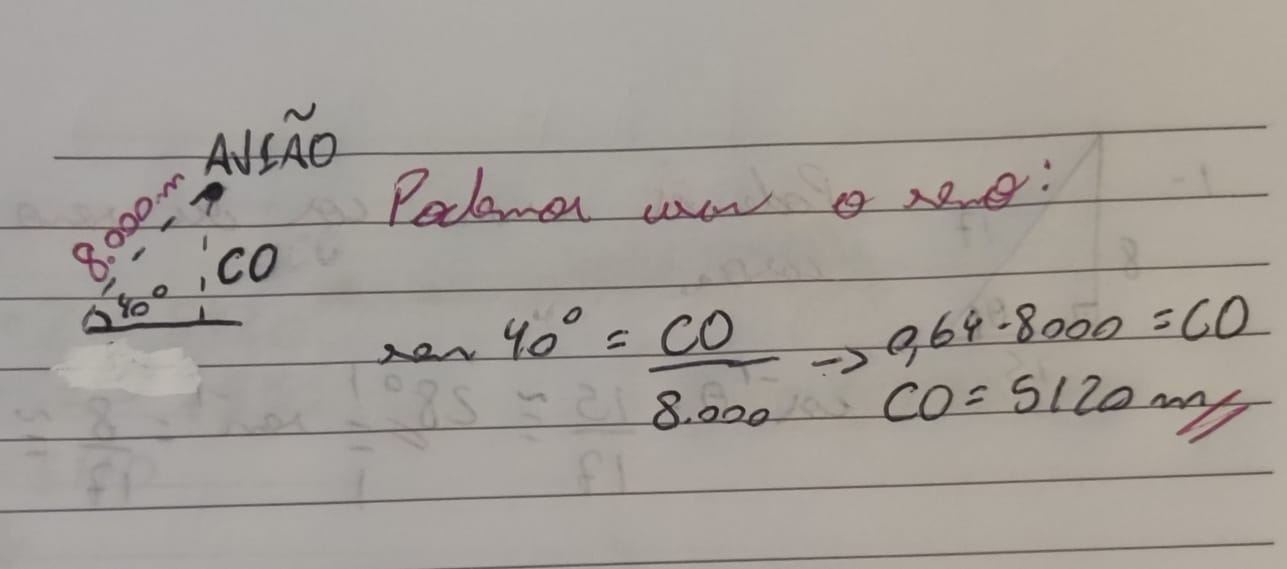 AVIÃO
8.000m
Podemos usar o seno:
CO
40°
sen 40° = CO / 8.000 -> 0,64 · 8000 = CO
CO = 5120 m